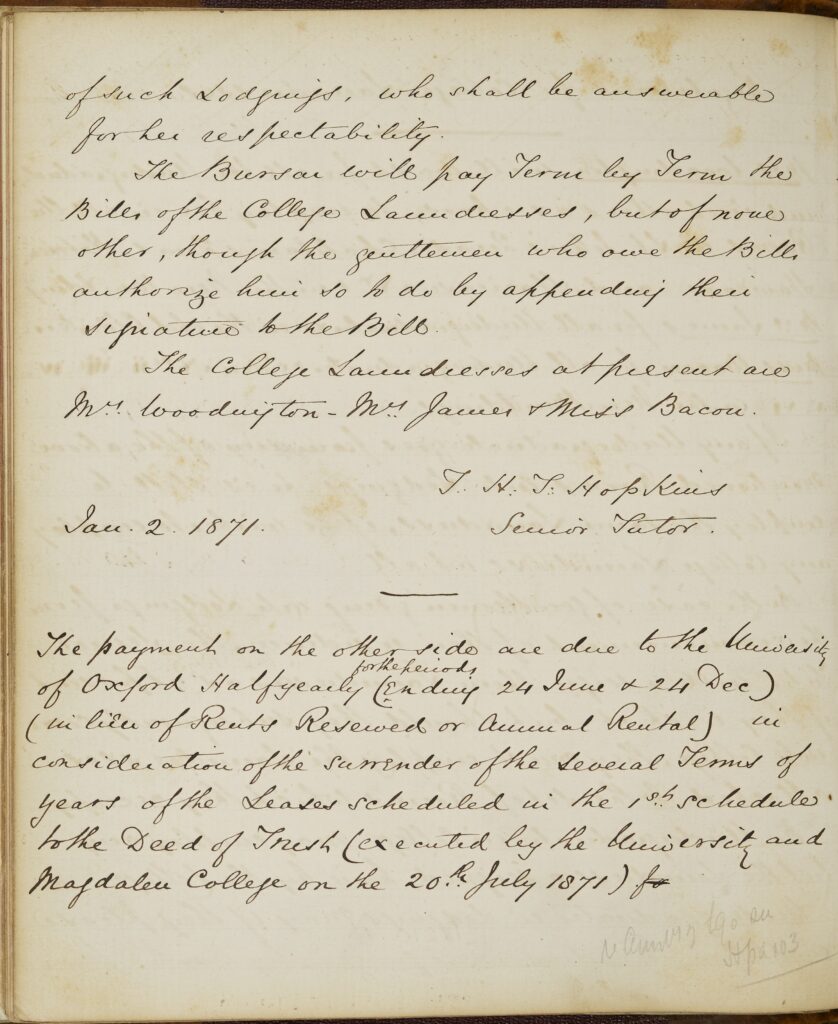 of such Lodgings, who shall be answerable
for her respectability.
The Bursar will pay Term by Term the
Bills of the College Laundresses, but of none
other, though the gentlemen who owe the Bills
authorize him so to do by appending their
signature to the Bill.
The College Laundresses at present are
Mrs. Woodington - Mrs James & Miss Bacon.
T. H. T. Hopkins
Jan. 2. 1871. Senior Tutor.
The payment on the other side are due to the University
for the periods
of Oxford Halfyearly (Ending 24 June & 24 Dec)
(in lieu of Rents Reserved or Annual Rental) in
consideration of the surrender of the several Terms of
years of the Leases scheduled in the 1st schedule
to the Deed of Trust (executed by the University and
Magdalen College on the 20th July 1871)